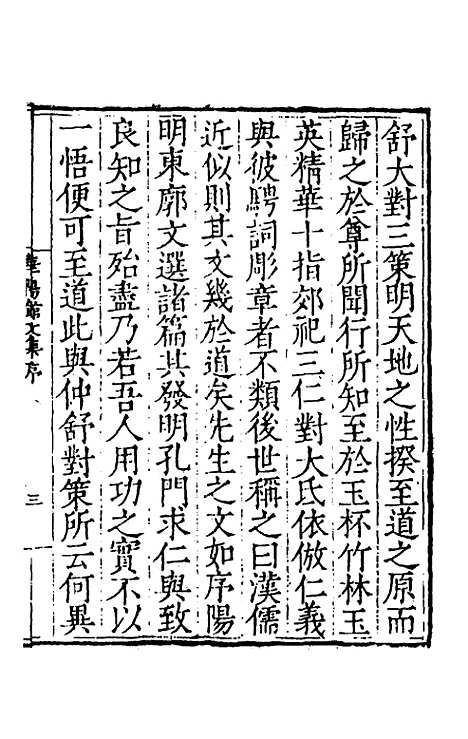 舒大對三策明天地之性揆至道之原而
歸之於尊所聞行所知至於玉杯竹林玉
英精華十指郊祀三仁對大氏依倣仁義
與彼騁詞彫章者不類後世稱之曰漢儒
近似則其文幾於道矣先生之文如序陽
明東廓文選諸篇其發明孔門求仁與致
良知之旨殆盡乃若吾人用功之實不以
一悟便可至道此與仲舒對策所云何異
華陽館文集序
三